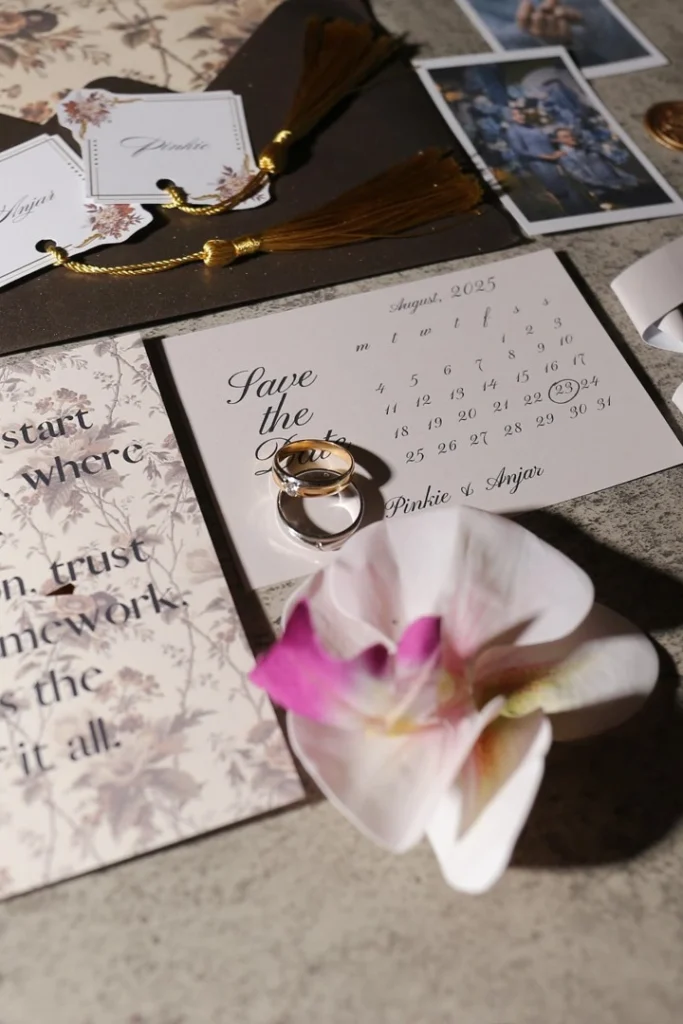 Pinkie
Anjar
August, 2025
m t w t f s s
1 2 3
4 5 6 7 8 9 10
11 12 13 14 15 16 17
18 19 20 21 22 23 24
25 26 27 28 29 30 31
Save
the
Date
Pinkie & Anjar
start
, where
on, trust
mework,
s the
it all.